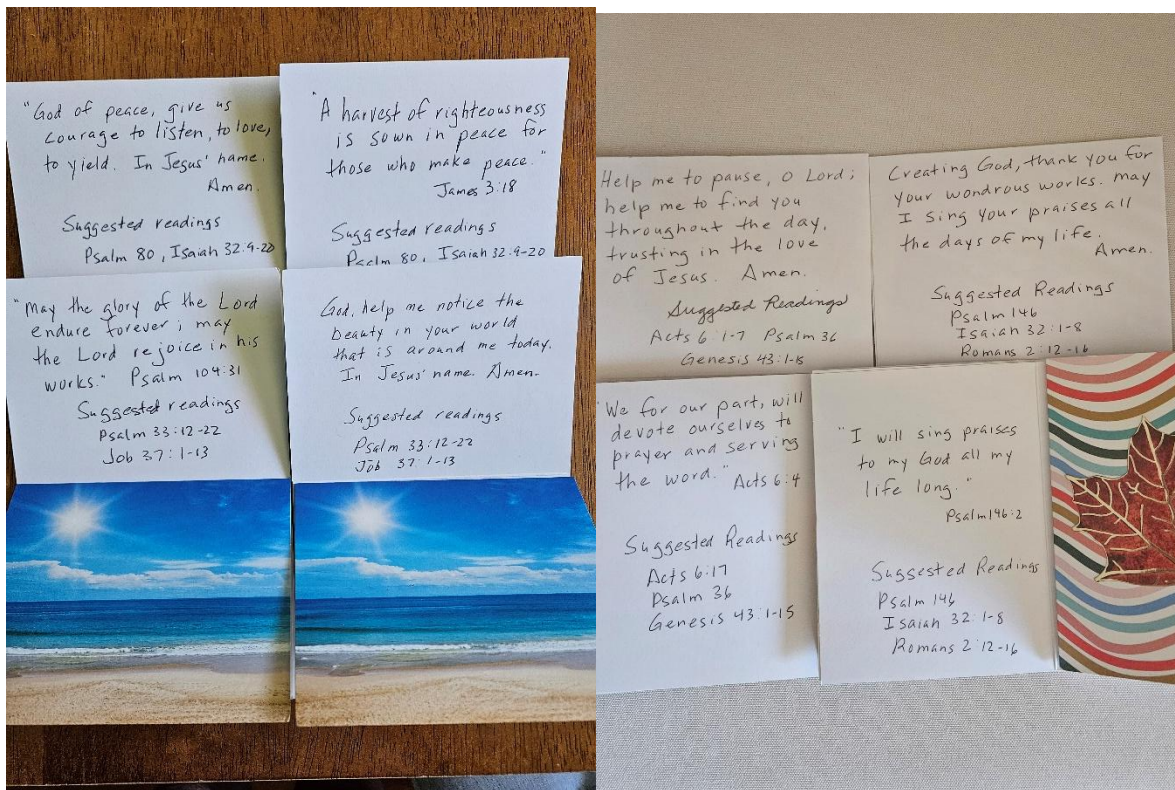 "God of peace, give us
courage to listen, to love,
to yield. In Jesus' name.
Amen.
Suggested readings
Psalm 80, Isaiah 32:9-20
"A harvest of righteousness
is sown in peace for
those who make peace."
James 3:18
Suggested readings
Psalm 80, Isaiah 32:9-20
"May the glory of the Lord
endure forever; may
the Lord rejoice in his
works." Psalm 104:31
Suggested readings
Psalm 33:12-22
Job 37:1-13
God, help me notice the
beauty in your world
that is around me today.
In Jesus' name. Amen.
Suggested readings
Psalm 33:12-22
Job 37:1-13
Help me to pause, O Lord;
help me to find you
throughout the day,
trusting in the love
of Jesus. Amen.
Suggested Readings
Acts 6:1-7 Psalm 36
Genesis 43:1-15
Creating God, thank you for
your wondrous works. may
I sing your praises all
the days of my life.
Amen.
Suggested Readings
Psalm 146
Isaiah 32:1-8
Romans 2:12-16
"We for our part, will
devote ourselves to
prayer and serving
the word." Acts 6:4
Suggested Readings
Acts 6:17
Psalm 36
Genesis 43:1-15
"I will sing praises
to my God all my
life long."
Psalm 146:2
Suggested Readings
Psalm 146
Isaiah 32:1-8
Romans 2:12-16